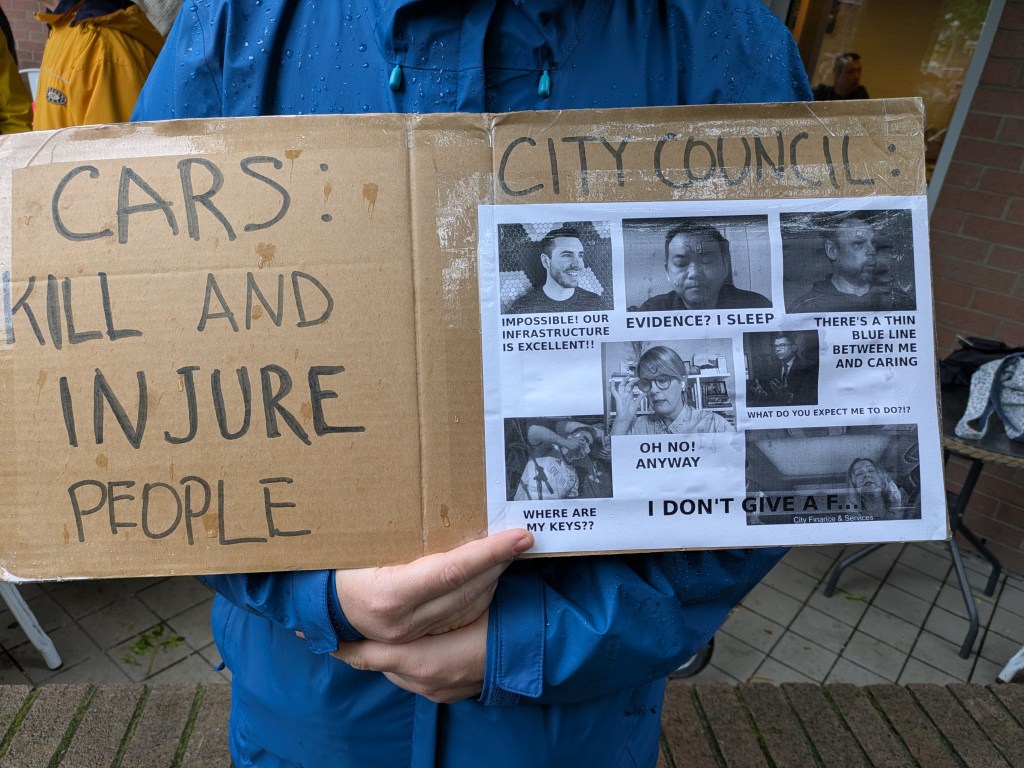 CARS:
KILL AND
INJURE
PEOPLE
CITY COUNCIL:
IMPOSSIBLE! OUR
INFRASTRUCTURE
IS EXCELLENT!!
EVIDENCE? I SLEEP
THERE'S A THIN
BLUE LINE
BETWEEN ME
AND CARING
WHAT DO YOU EXPECT ME TO DO?!?
OH NO!
ANYWAY
WHERE ARE
MY KEYS??
I DON'T GIVE A F...
City Finance & Services